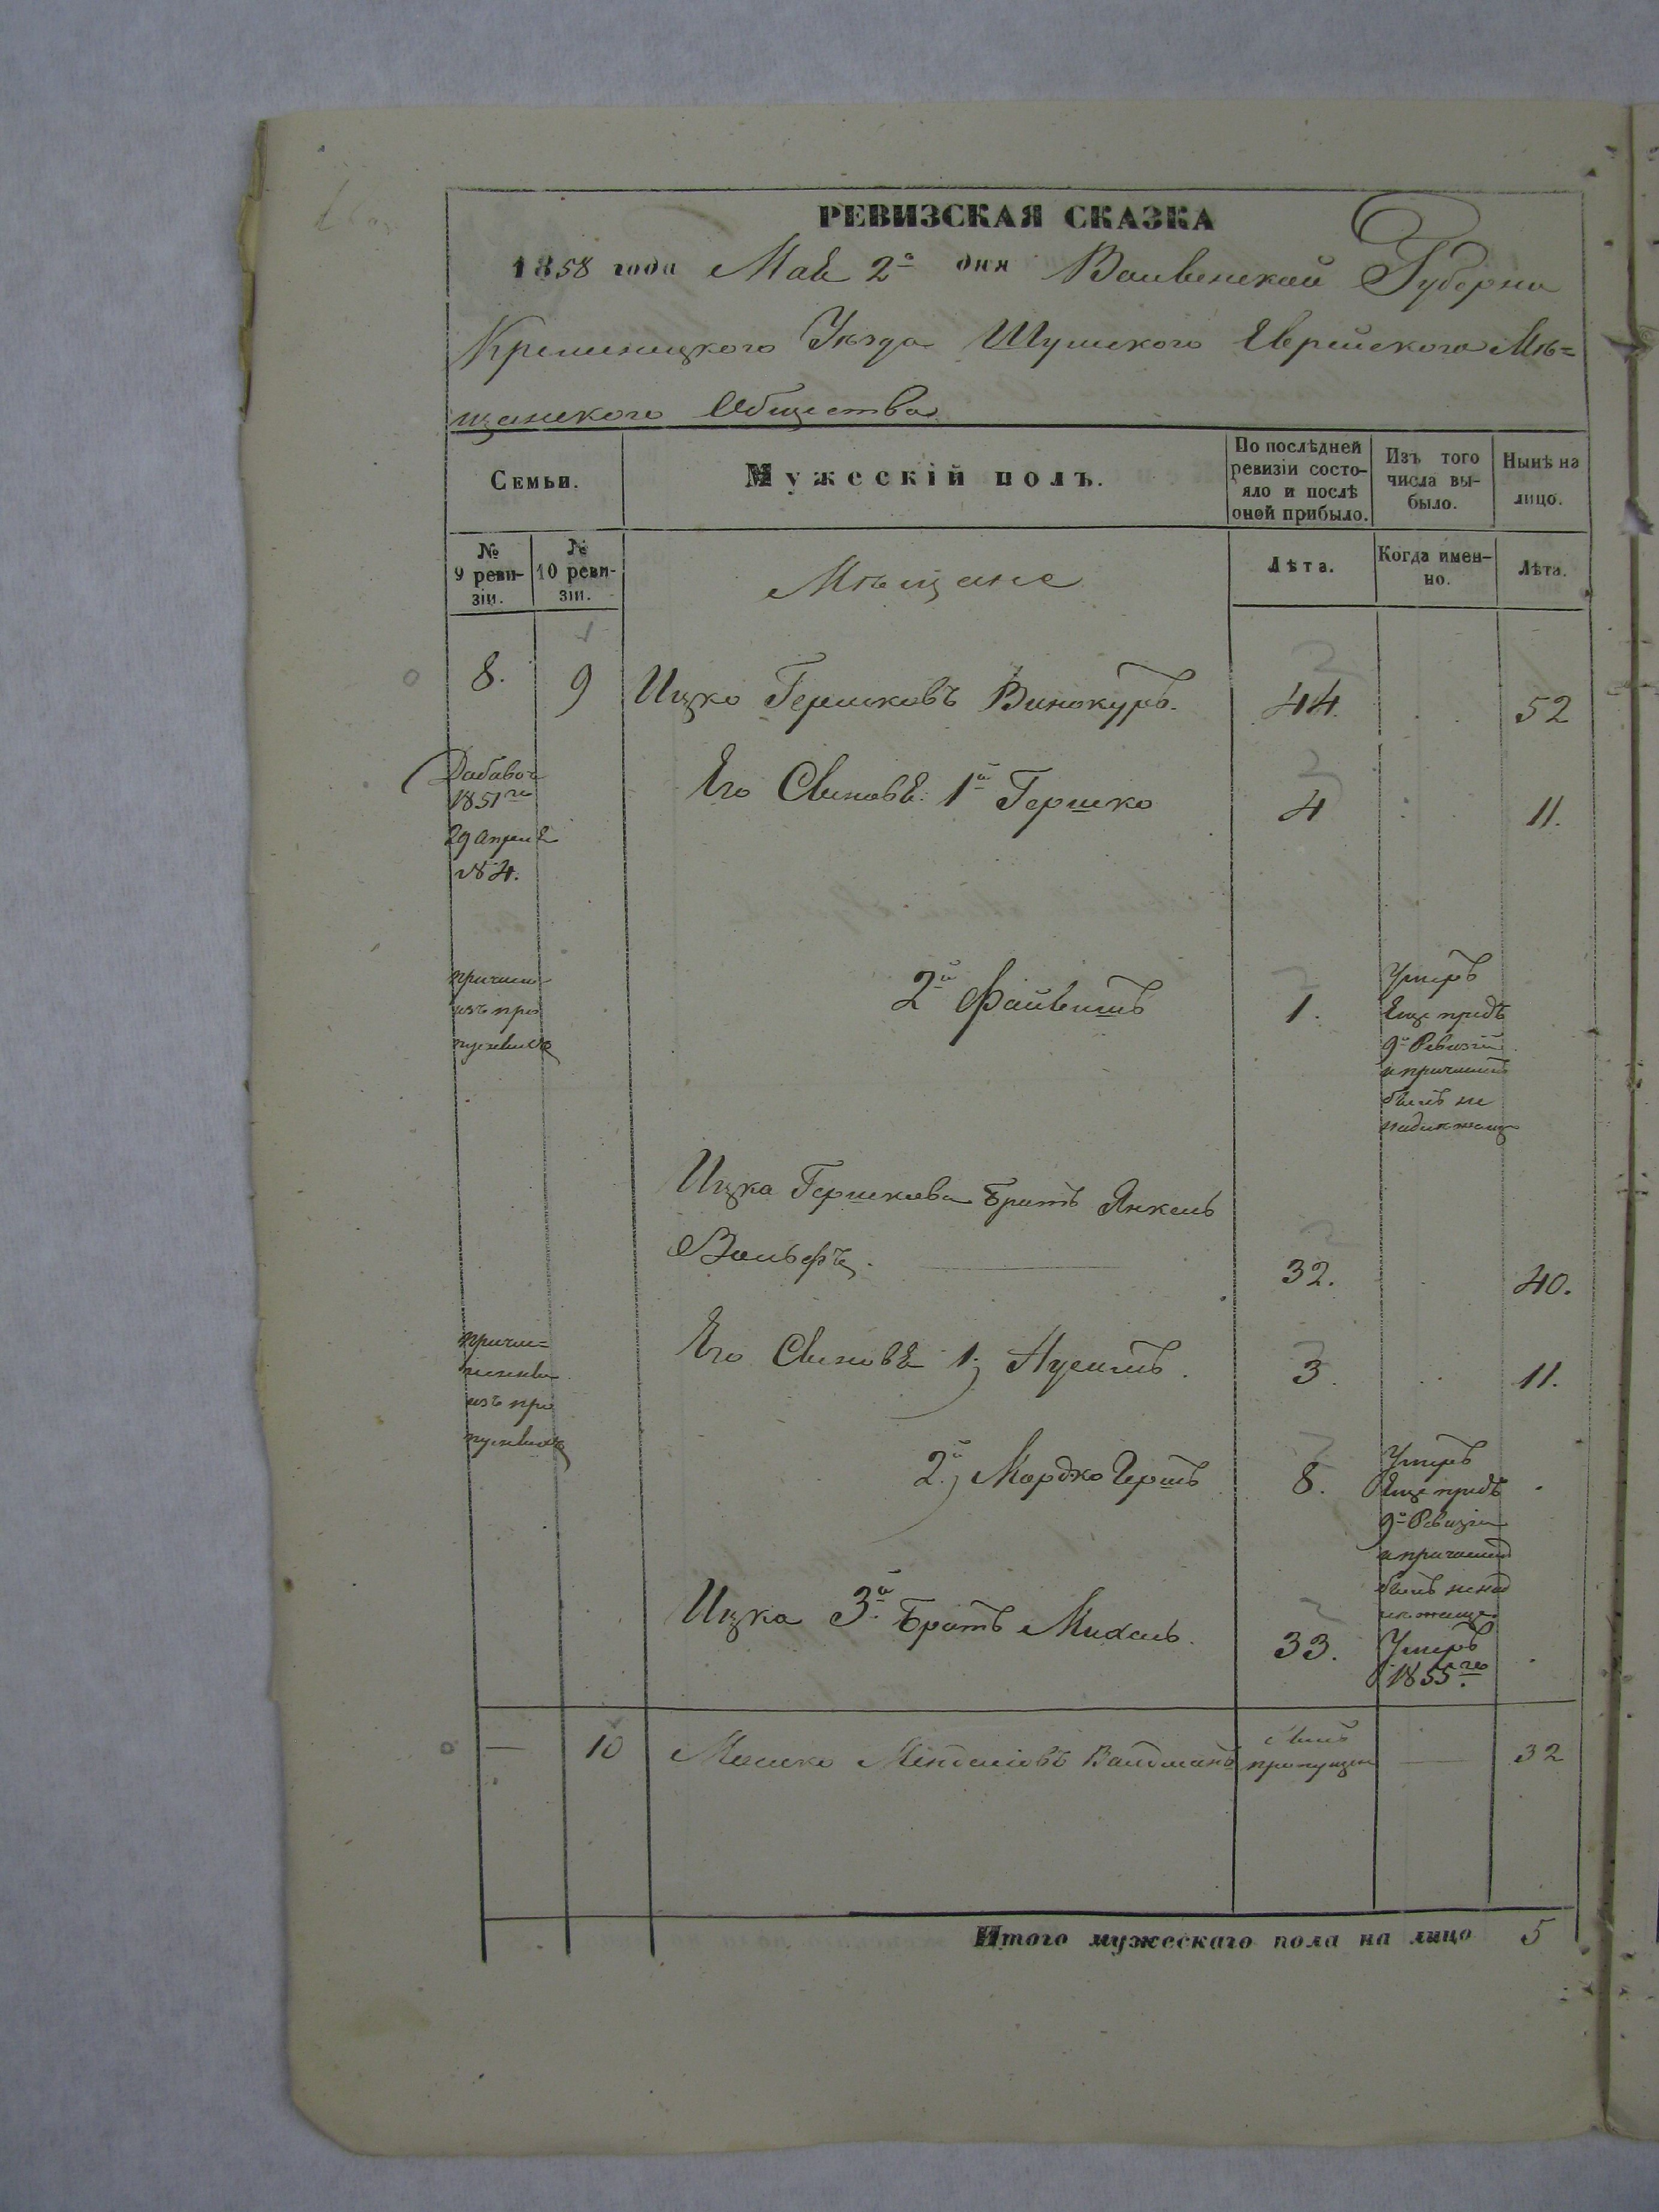 РЕВИЗСКАЯ СКАЗКА
1858 года Мая 2го дня Волынской Губерни
Кременецкого Уѣзда Шумского Еврейского Мѣ=
щанского Общества
Семьи.
Мужескій полъ.
По послѣдней
ревизіи состо-
яло и послѣ
оной прибыло.
Изъ того
числа вы-
было.
Нынѣ на
лицо.
№
9 реви-
зіи.
№
10 реви-
зіи.
Мѣщане
Лѣта.
Когда имен-
но.
Лѣта.
8. 9 Ицко Гершковъ Винокуръ. 44. 52
Добавоч
1851го
29 Апреля
№ 4.
Его Сыновья: 1й Гершко 4 11.
причисл
изъ про
пускныхъ
2й Файвишъ 1.
Умеръ
Еще предъ
9й Ревизіи
и причислен
былъ не
надлежаще
Ицка Гершкова Братъ Янкель
Вольфъ. 32. 40.
причис=
ленный
изъ про
пускныхъ
Его Сыновья 1й Нусимъ. 3. 11.
2й Мордко Гершъ 8.
Умеръ
Еще предъ
9й Ревизіи
и причислен
былъ ненад
лежаще.
Ицка 3й Братъ Михель. 33.
Умеръ
1855го
— 10 Мошко Менделіовъ Валдманъ
пропущен — 32
Итого мужескаго пола на лицо 5